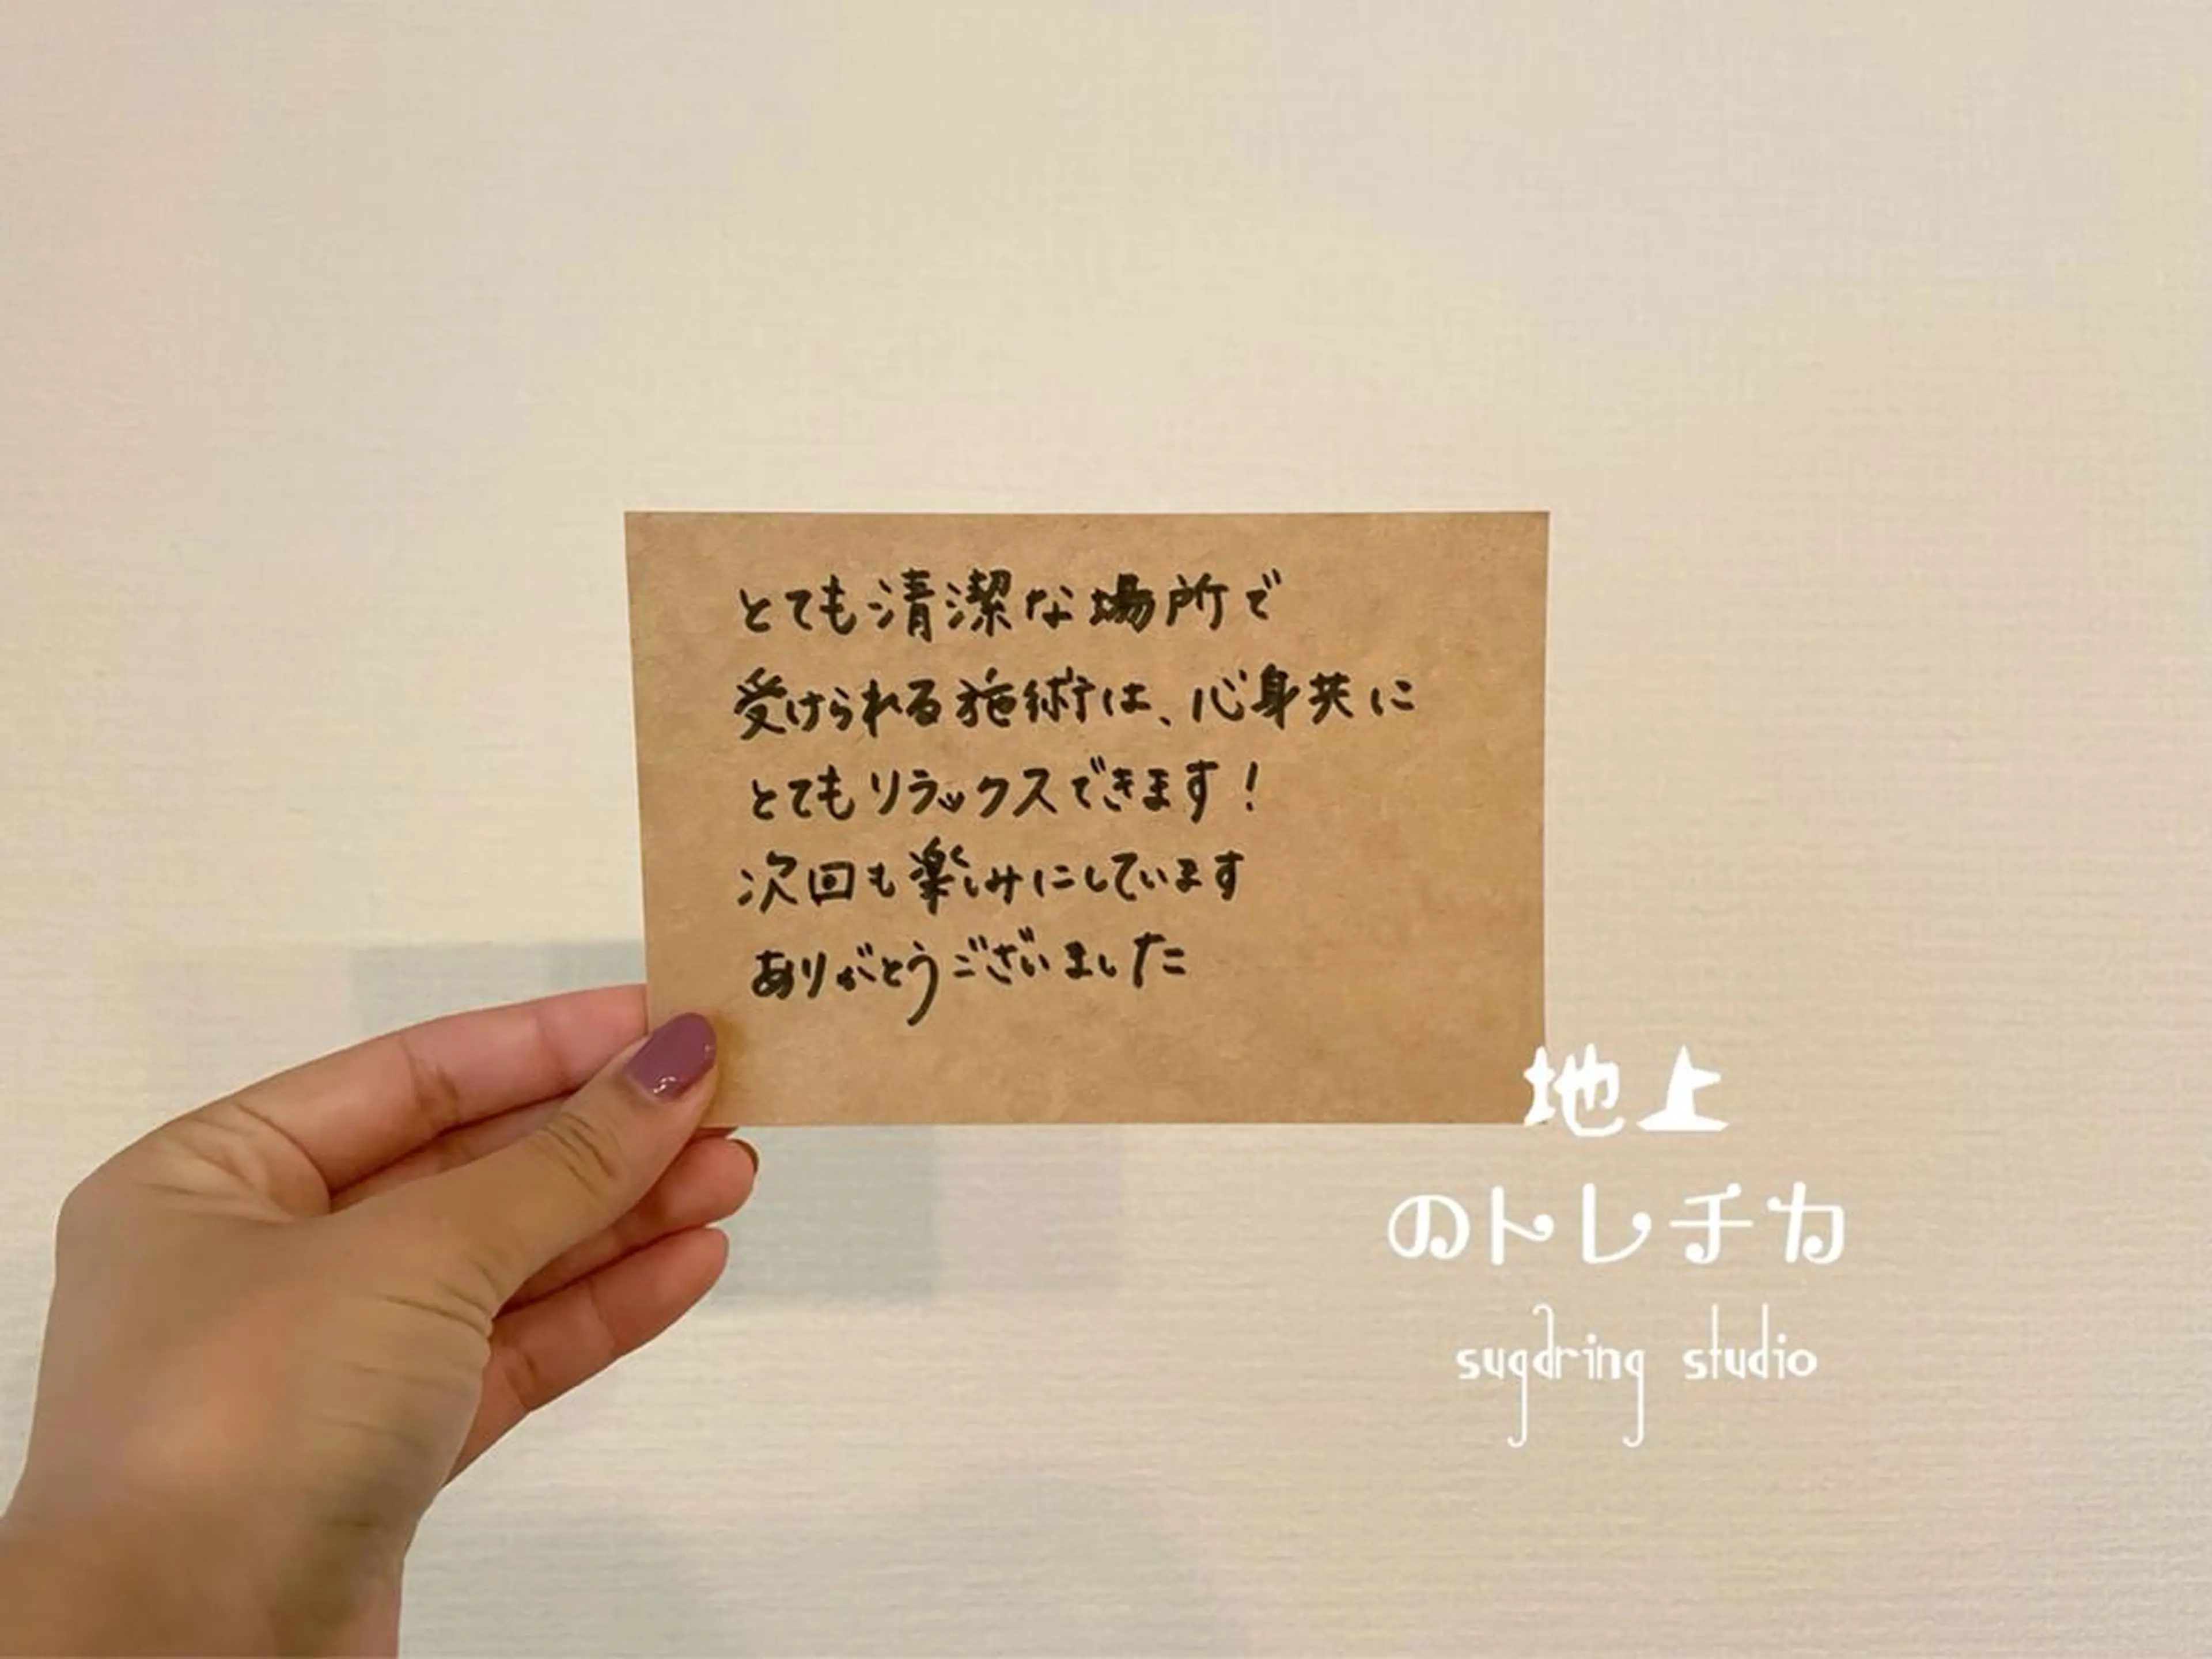 とても清潔な場所で
受けられる施術は、心身共に
とてもリラックスできます!
次回も楽しみにしています
ありがとうございました
地上
のトレチカ
sugaring studio